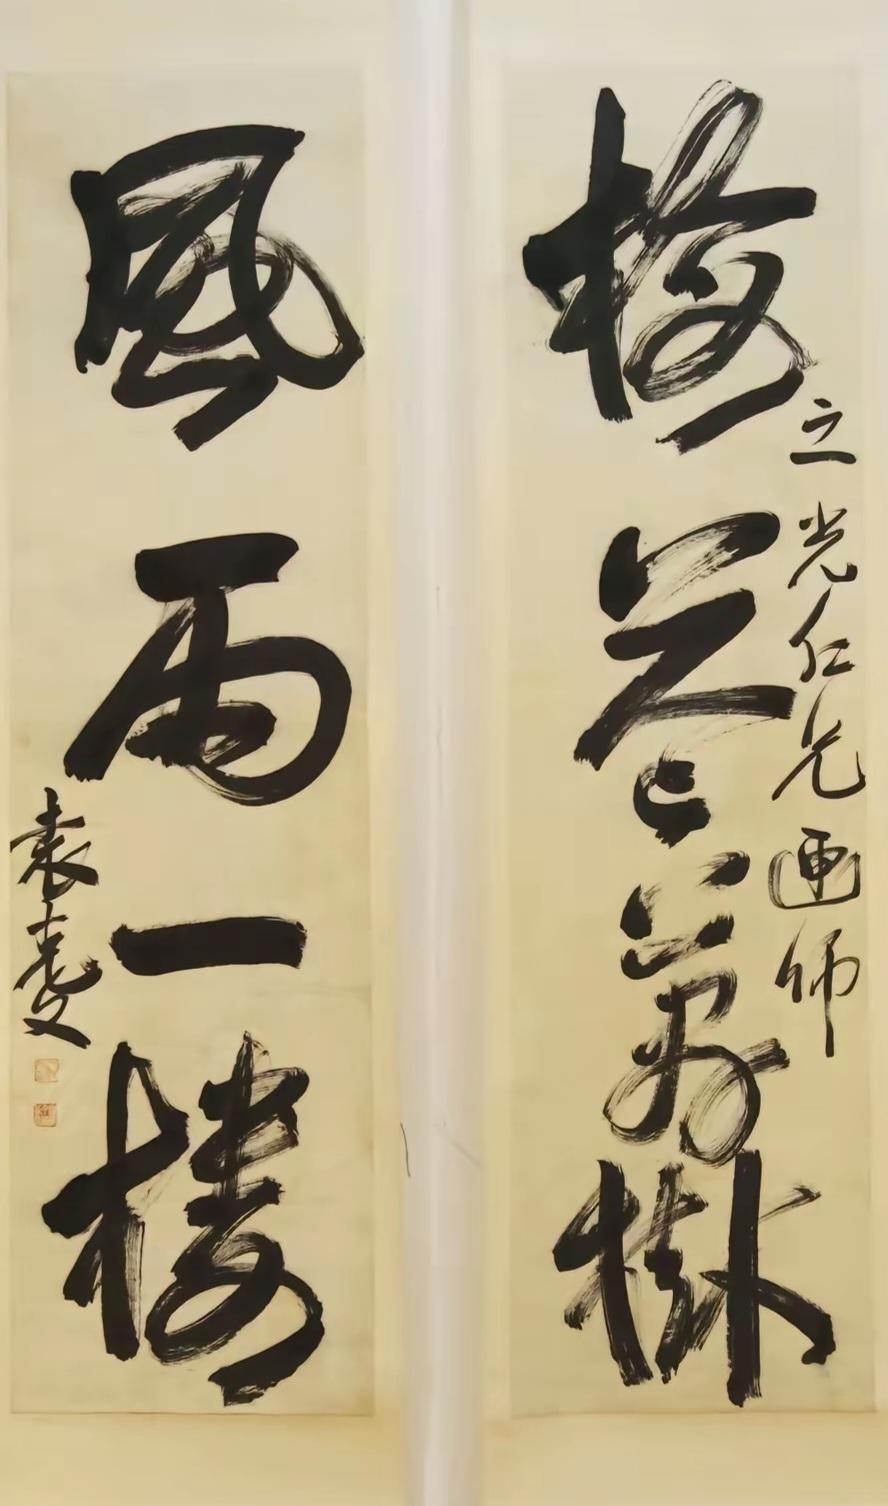 梅花萬樹
立光仁兄画師
風雨一樓
袁克文